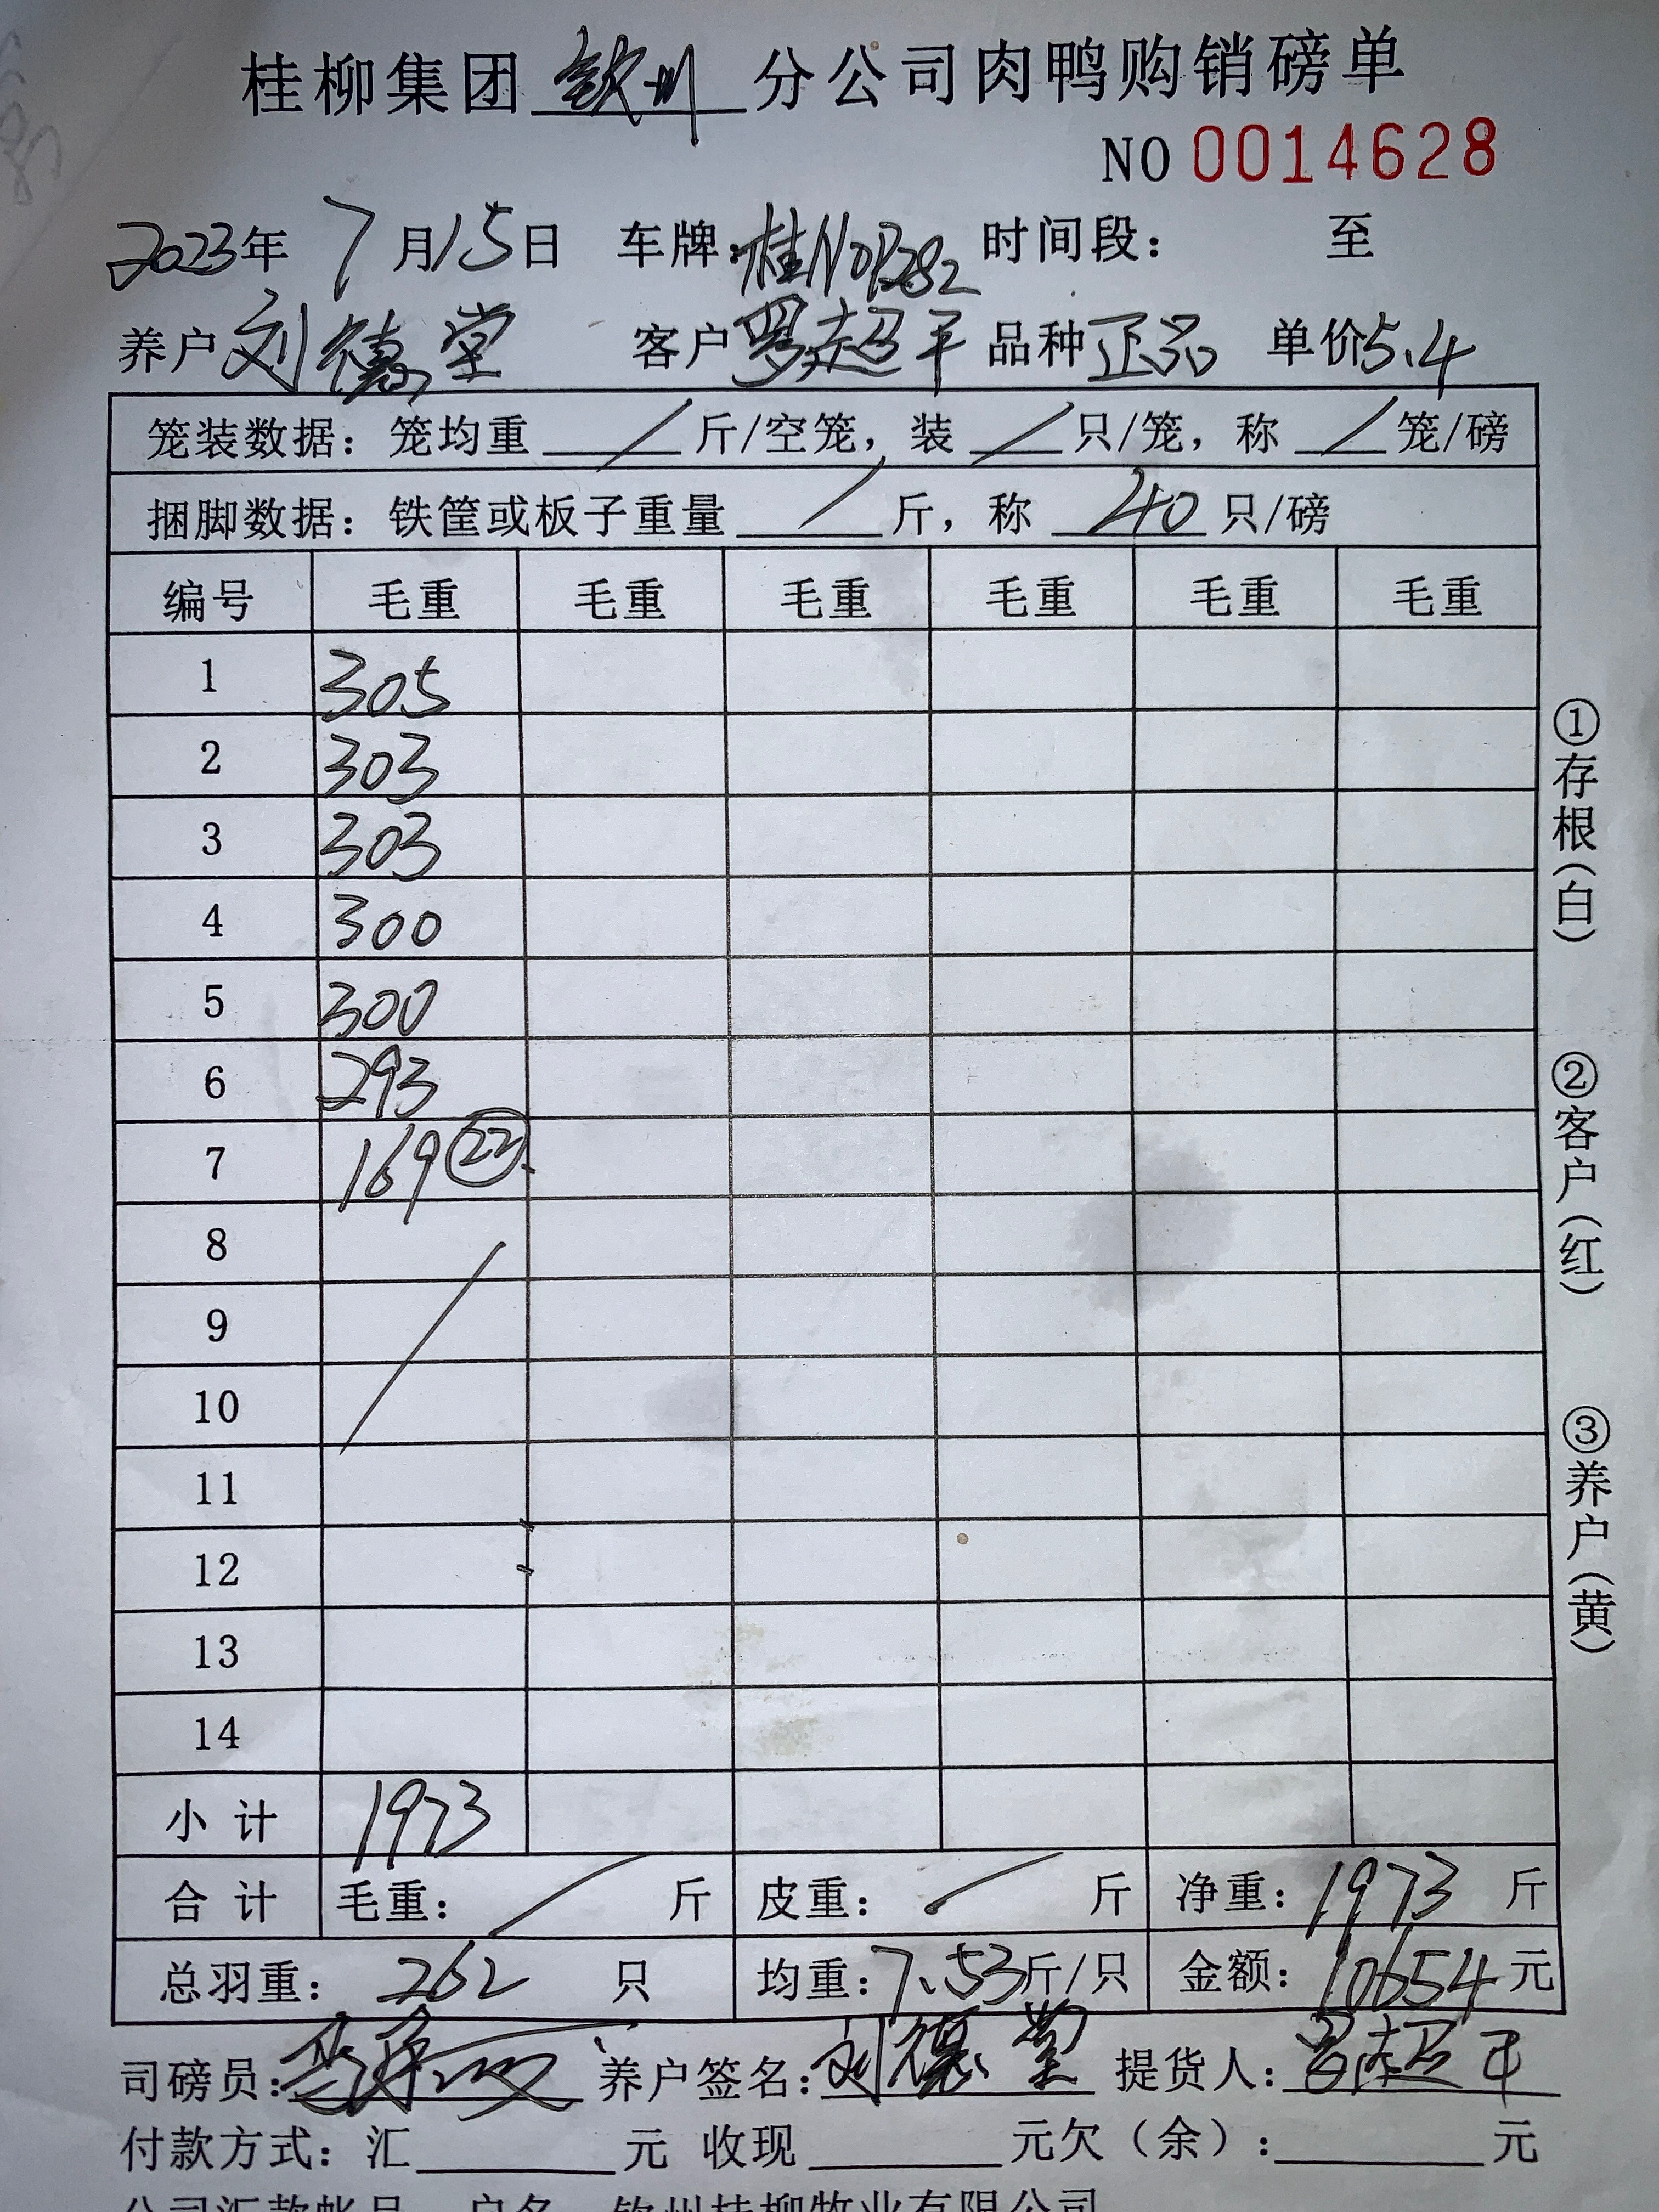 桂柳集团 钦州 分公司肉鸭购销磅单
NO 0014628
2023年 7月15日 车牌:桂N0B282 时间段: 至
养户 刘德堂 客户 罗超平 品种 正品 单价5.4
笼装数据:笼均重 / 斤/空笼,装 / 只/笼,称 / 笼/磅
捆脚数据:铁筐或板子重量 / 斤,称 40 只/磅
编号 毛重 毛重 毛重 毛重 毛重 毛重
1 305
2 303
3 303
4 300
5 300
6 293
7 169 ㉒
8
9
10
11
12
13
14
小计 1973
合计 毛重: / 斤 皮重: / 斤 净重:1973 斤
总羽重: 262 只 均重:7.53斤/只 金额:10654元
司磅员: 养户签名:刘德堂 提货人:罗超平
付款方式:汇 元 收现 元欠(余): 元
公司汇款帐号 户名 钦州桂柳牧业有限公司
①存根(白)
②客户(红)
③养户(黄)